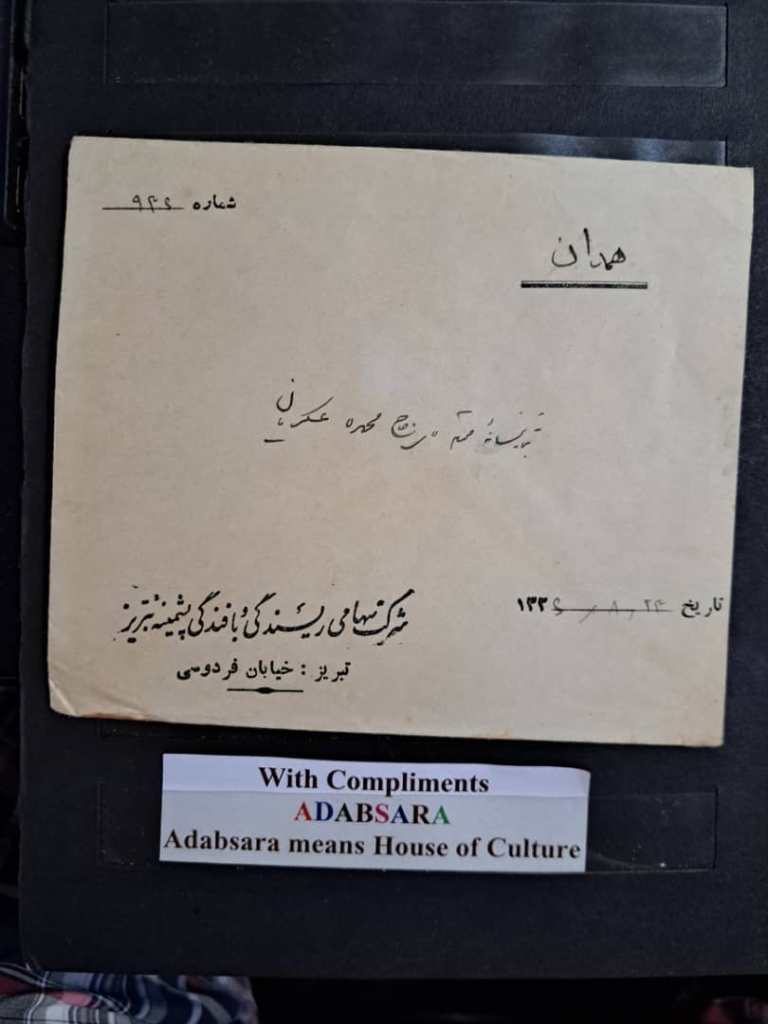 شماره ۹۴۶
همدان
محترم
شرکت سهامی ریسندگی و بافندگی پشمینه تبریز
تبریز : خیابان فردوسی
تاریخ ۲۴ / ۸ / ۱۳۳۶
With Compliments
ADABSARA
Adabsara means House of Culture